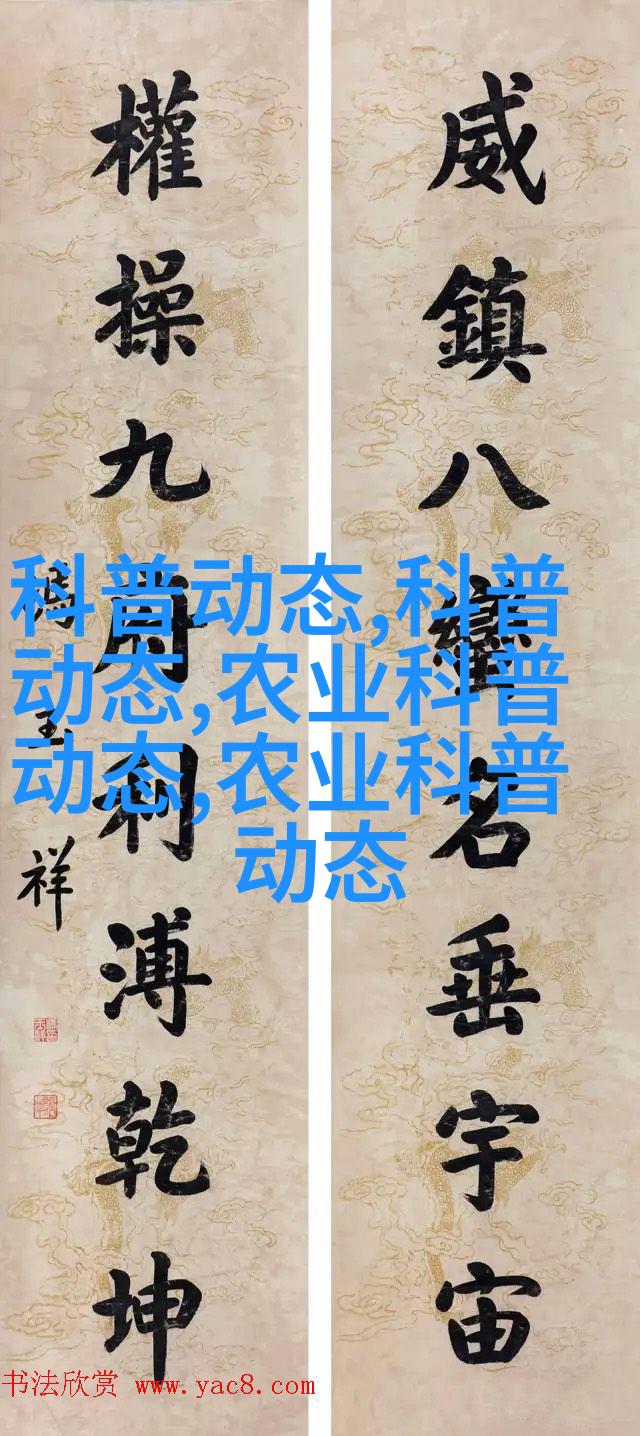 威鎮八蠻名垂宇宙
權操九利溥乾坤
馮玉祥
科普动态,科普
动态,农业科普
动态,农业科普
动态
书法欣赏 www.yac8.com